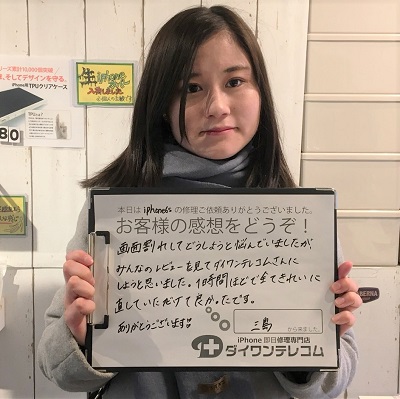 リーズ累計10,000個突破
そしてデザインを守る。
iPhone用TPUクリアケース
80
入荷しました
BERNA
本日は iphone6s の修理ご依頼ありがとうございました。
お客様の感想をどうぞ！
画面割れしてどうしようと悩んでいましたが
みんなのレビューを見てダイワンテレコムさんに
しようと思いました。1時間ほどで全てきれいに
直していただけて良かったです。
ありがとうございます!!
三島
から来ました。
iPhone 即日修理専門店
ダイワンテレコム